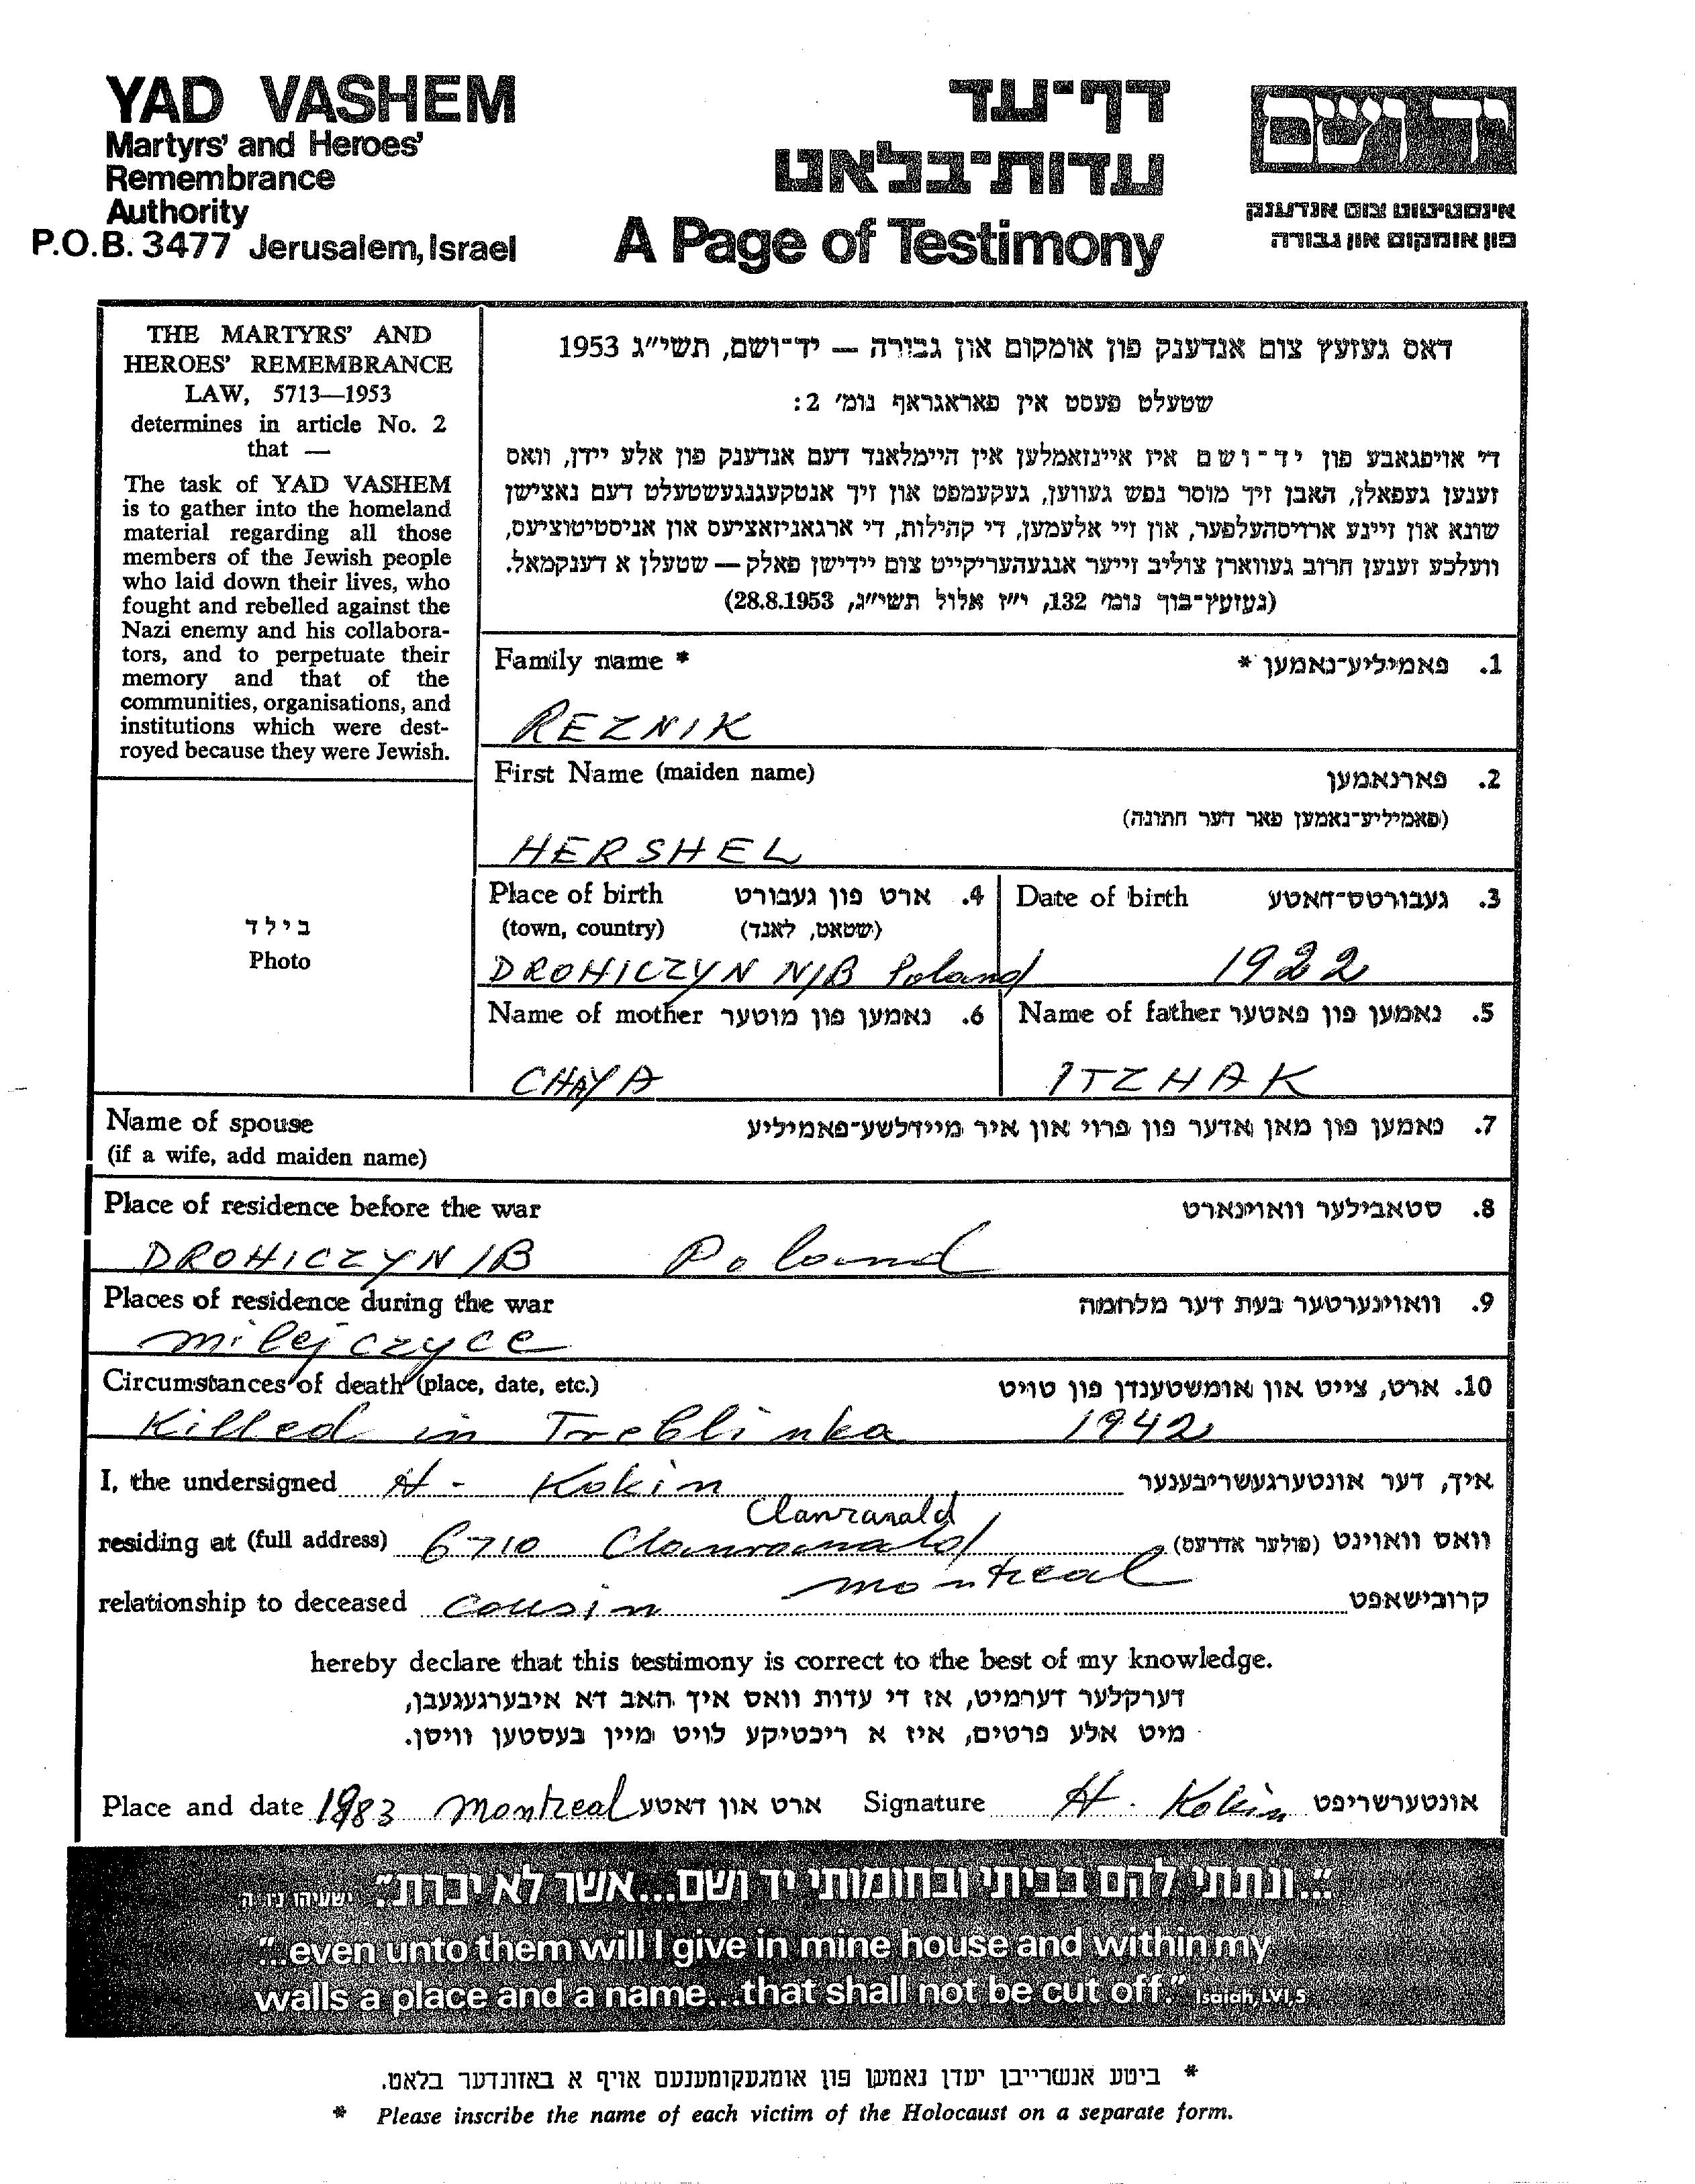 YAD VASHEM
Martyrs' and Heroes'
Remembrance
Authority
P.O.B. 3477 Jerusalem, Israel
דף־עד
עדות־בלאט
A Page of Testimony
יד ושם
אינסטיטוט צום אנדענק
פון אומקום און גבורה
THE MARTYRS' AND
HEROES' REMEMBRANCE
LAW, 5713—1953
determines in article No. 2
that —
The task of YAD VASHEM
is to gather into the homeland
material regarding all those
members of the Jewish people
who laid down their lives, who
fought and rebelled against the
Nazi enemy and his collabora-
tors, and to perpetuate their
memory and that of the
communities, organisations, and
institutions which were dest-
royed because they were Jewish.
דאס געזעץ צום אנדענק פון אומקום און גבורה — יד־ושם, תשי״ג 1953
שטעלט פעסט אין פאראגראף נומ׳ 2:
די אויפגאבע פון יד־ושם איז איינזאמלען אין היימלאנד דעם אנדענק פון אלע יידן, וואס
זענען געפאלן, האבן זיך מוסר נפש געווען, געקעמפט און זיך אנטקעגנגעשטעלט דעם נאצישן
שונא און זיינע ארויסהעלפער, און זיי אלעמען, די קהילות, די ארגאניזאציעס און אניסטיטוציעס,
וועלכע זענען חרוב געווארן צוליב זייער אנגעהעריקייט צום יידישן פאלק — שטעלן א דענקמאל.
(געזעץ־בוך נומ׳ 132, י״ז אלול תשי״ג, 28.8.1953)
Family name * 1. פאמיליע־נאמען *
REZNIK
First Name (maiden name) 2. פארנאמען
(פאמיליע־נאמען פאר דער חתונה)
HERSHEL
Place of birth 4. ארט פון געבורט Date of birth 3. געבורטס־דאטע
(town, country) (שטאט, לאנד)
DROHICZYN N/B Poland 1922
Name of mother 6. נאמען פון מוטער Name of father 5. נאמען פון פאטער
CHAYA ITZHAK
בילד
Photo
Name of spouse 7. נאמען פון מאן אדער פון פרוי און איר מיידלשע־פאמיליע
(if a wife, add maiden name)
Place of residence before the war 8. סטאבילער וואוינארט
DROHICZYN/B Poland
Places of residence during the war 9. וואוינערטער בעת דער מלחמה
milejczyce
Circumstances of death (place, date, etc.) 10. ארט, צייט און אומשטענדן פון טויט
Killed in Treblinka 1942
I, the undersigned H - Kokin איך, דער אונטערגעשריבענער
Clanranald
residing at (full address) 6710 Clanranald וואס וואוינט (פולער אדרעס)
montreal
relationship to deceased cousin קרובישאפט
hereby declare that this testimony is correct to the best of my knowledge.
דערקלער דערמיט, אז די עדות וואס איך האב דא איבערגעגעבן,
מיט אלע פרטים, איז א ריכטיקע לויט מיין בעסטען וויסן.
Place and date 1983 montreal ארט און דאטע Signature H. Kokin אונטערשריפט
"...ונתתי להם בביתי ובחומותי יד ושם...אשר לא יכרת." ישעיהו נו, ה
"...even unto them will I give in mine house and within my
walls a place and a name...that shall not be cut off." Isaiah, LVI, 5
* ביטע אנשרייבן יעדן נאמען פון אומגעקומענעם אויף א באזונדער בלאט.
* Please inscribe the name of each victim of the Holocaust on a separate form.